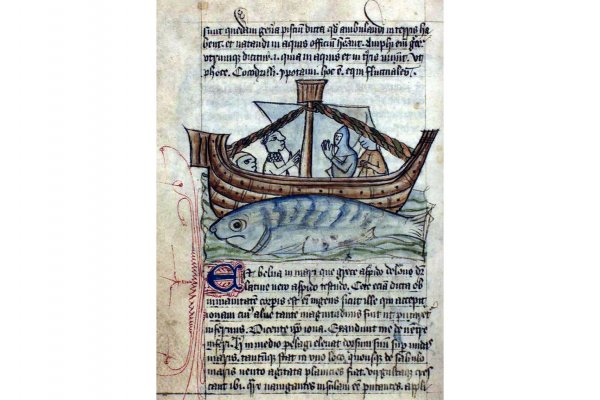 sunt quedam gen̄a pisciū dicta qđ ambulandi in terris ha
bent. et natandi in aquis officiū heant. Amphi em̄ grece
vtrumque dicitur .i. quia in aquis et in tris viuunt. vt
phoce. Cocodrilli. ypotami. hoc ē. equi fluctuales.
Est belua in mari que grece aspido delone dr̄
latine vero aspido testudo. Cete eciā dicta ob
inmanitatem corpis est ei ingens sicut ille qui accepit
ionam cuiꝰ aluꝰ tante magnitudinis fuit ut putaret
infernus. Dicente ip̄o iona. Exaudiuit me de ventre
inferi. Hic in medio pelagi eleuat dorsum suum undas
maris. tantumque stat in vno loco. quousque de sabulo
maris vento agitata planicies fiat. virgultaque cres
cant ibi. Qr̄e nauigantes insulam eē putantes. appli